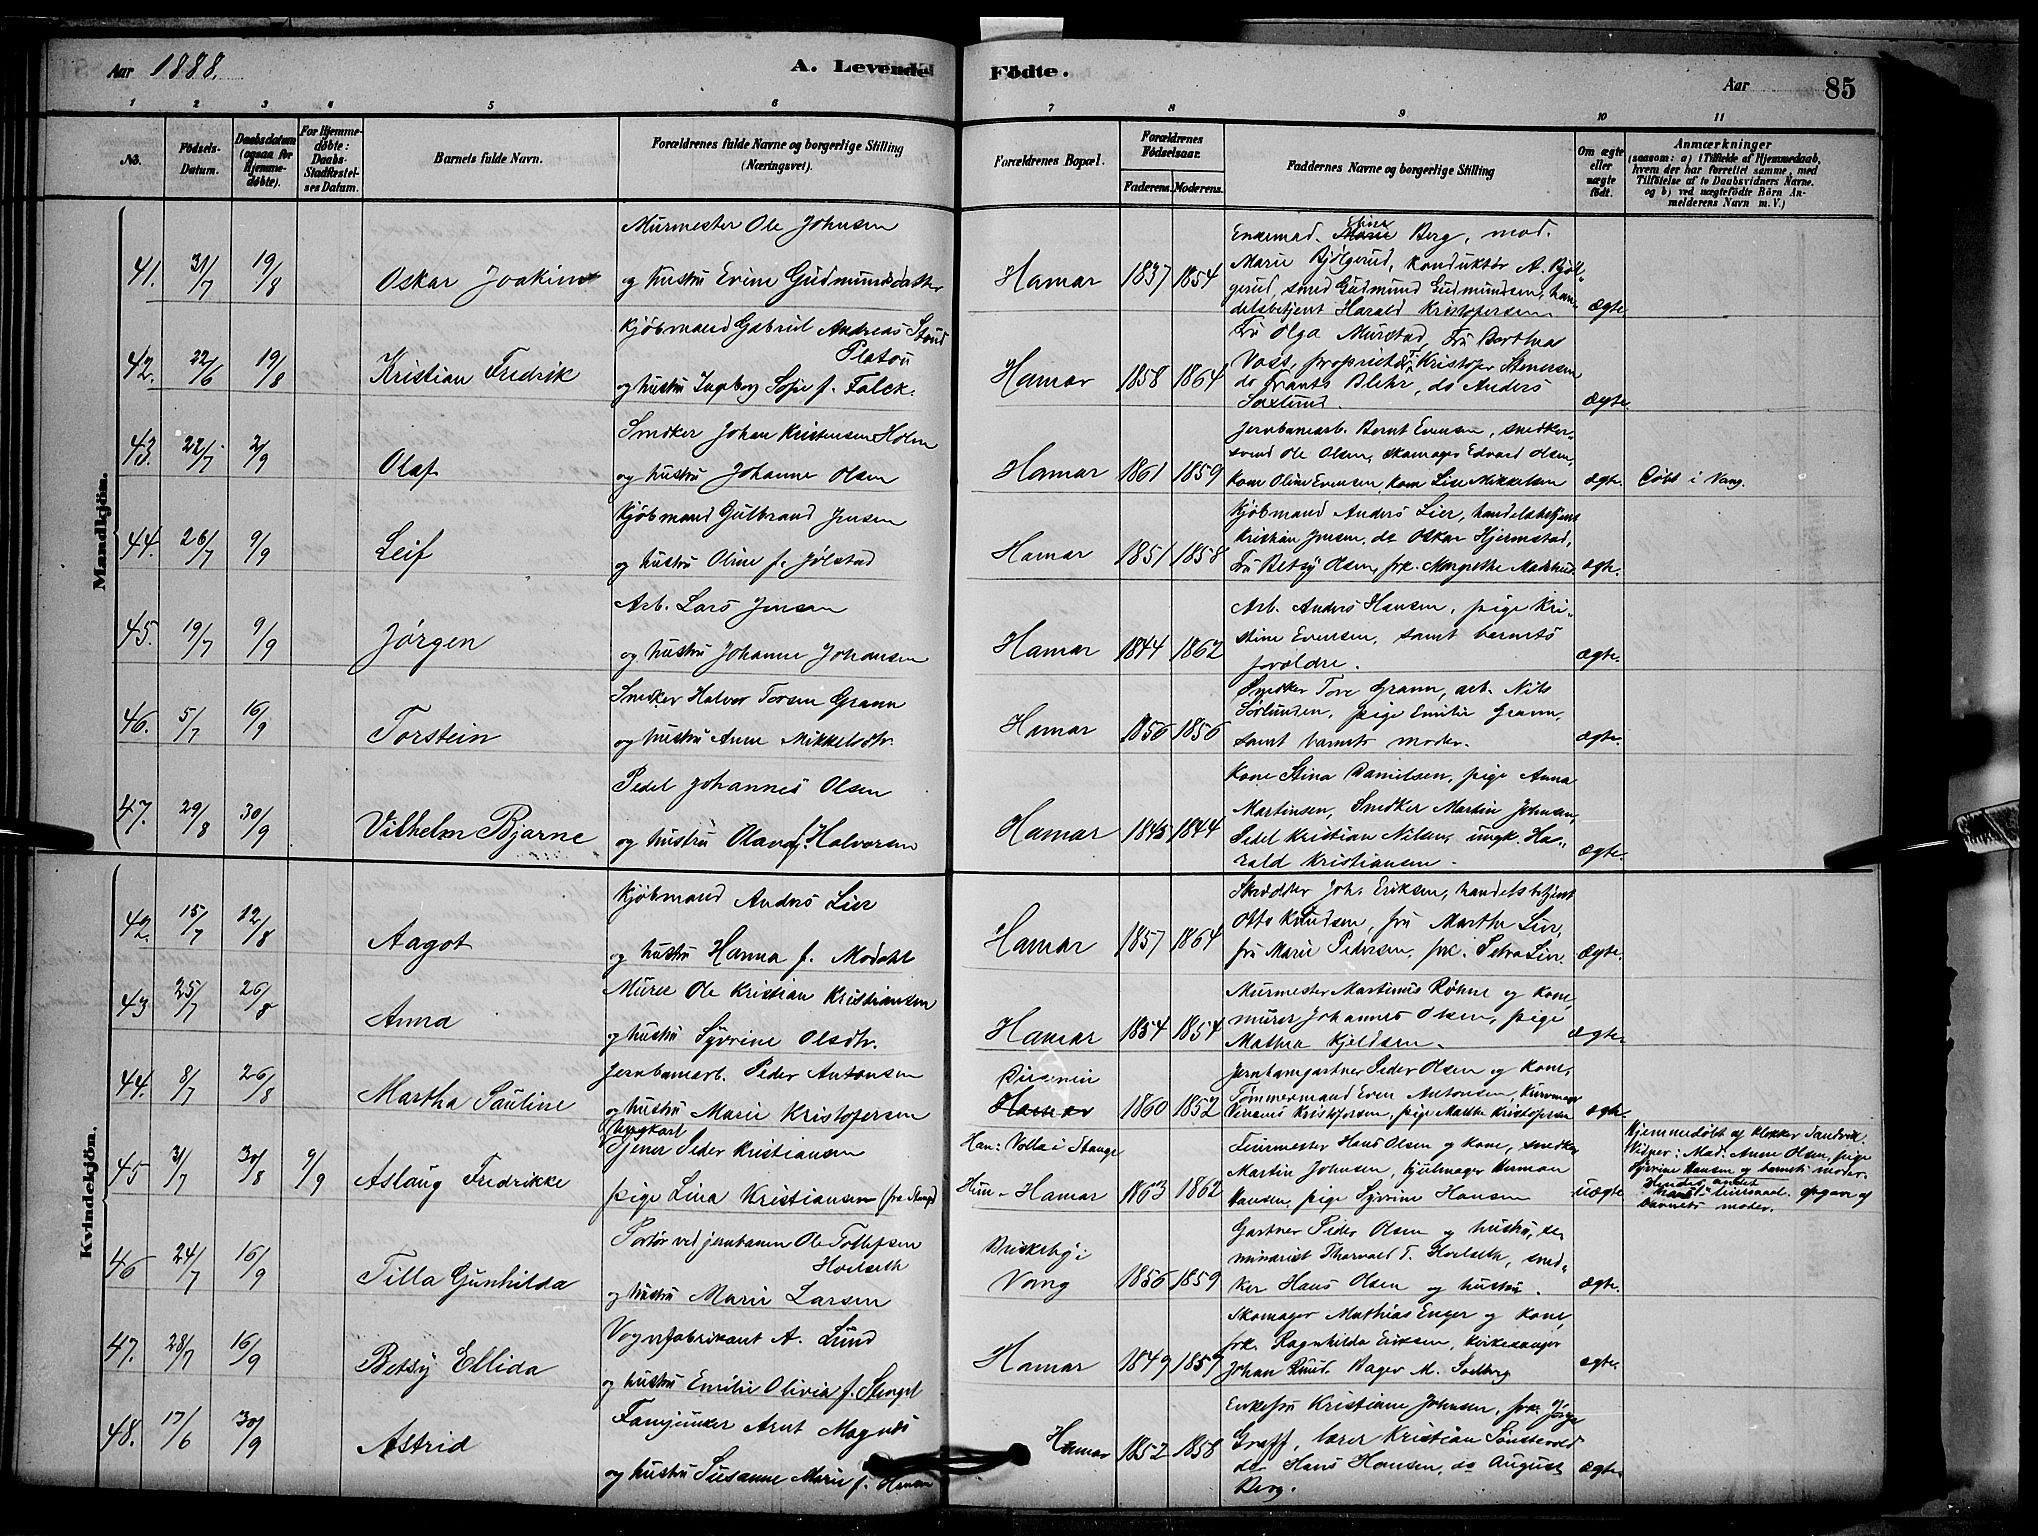 Aar 1888.
A. Levende Födte.
Aar 85
1 2 3 4 5 6 7 8 9 10 11
No.
Födsels-
Datum.
Daabsdatum
(ogsaa for
Hjemme-
døbte).
For Hjemme-
døbte:
Daabs-
Stadfæstel-
ses Datum.
Barnets fulde Navn.
Forældrenes fulde Navne og borgerlige Stilling
(Næringsvei).
Forældrenes Bopæl.
Forældrenes
Födselsaar.
Faderens. Moderens.
Faddernes Navne og borgerlige Stilling
Om ægte
eller
uægte
født.
Anmærkninger
(saasom: a) i Tilfælde af Hjemmedaab,
hvem der har forrettet samme, med
Tilföielse af to Daabsvidners Navne.
og b) ved uægtefödte Börn An-
melderens Navn m. V.)
Mandkjön.
Murmester Ole Johnsen
41. 31/7 19/8 Oskar Joakim
og hustru Evine Gudmundsdatter
Hamar 1837 1854
Enkemad. Marie Eline Berg, mad.
Marie Bjölgerud, konduktör A. Bjöl-
gerud, smed Gudmund Gudmundsen, han-
delsbetjent Harald Kristofersen
ægte
Kjöbmand Gabriel Andreas Stoud
Platou
42. 22/6 19/8 Kristian Fredrik
og hustru Ingeborg Sofie f. Falck.
Hamar 1858 1864
Fru Olga Mürstad, Fru Berthea
Voss, proprietær Kristofer Stenersen
do Frants Blehr, do Anders
Saxlund.
ægte.
Snedker Johan Kristensen Holm
43. 22/7 2/9 Olaf
og hustru Johanne Olsen
Hamar 1861 1859
Jernbanearb. Bernt Evensen, snedker-
svend Ole Olsen, skomager Edvard Olsen,
kone Oline Evensen, kone Lise Mikkelsen
ægte. Döbt i Vang.
Kjöbmand Gulbrand Jensen
44. 26/7 9/9 Leif
og hustru Oline f. Jölstad
Hamar 1851 1858
Kjöbmand Anders Lier, handelsbetjent
Kristian Jensen, do Oskar Hjermstad,
Fru Betsy Olsen, frk. Margrethe
ægte.
Arb. Lars Jensen
45. 19/7 9/9 Jörgen
og hustru Johanne Johansen
Hamar 1844 1862
Arb. Anders Hansen, pige Kri-
stine Evensen, samt barnets
forældre.
ægte.
Snedker Halvor Torsen Grann
46. 5/7 16/9 Torstein
og hustru Anne Mikkelsdtr.
Hamar 1856 1856
Snedker Tore Grann, arb. Nils
Sörlunden, pige Emilie Grann,
samt barnets moder.
ægte.
Pedel Johannes Olsen
47. 29/8 30/9 Vilhelm Bjarne
og hustru Olava f. Halvorsen
Hamar 1845 1844
Kone Stina Danielsen, pige Anna
Martinsen, Snedker Martin Johnsen,
Pedel Kristian Nilsen, ungk. Ha-
rald Kristiansen.
ægte.
Kvindekjön.
Kjöbmand Anders Lier
42. 15/7 12/8 Aagot
og hustru Hanna f. Modahl
Hamar 1857 1864
Skrædder Joh. Eriksen, handelsbetjent
Otto Knudsen, fru Marthe Lier,
fru Marie Pedersen, frk. Petra Lier.
ægte.
Murer Ole Kristian Kristiansen
43 25/7 26/8 Anna
og hustru Syverine Olsdtr.
Hamar 1854 1854
Murmester Martinus Röhne og kone,
murer Johannes Olsen, pige
Mathea Kjeldsen.
ægte.
Jernbanearb. Peder Antonsen
44. 8/7 26/8 Martha Pauline
og hustru Marie Kristofersen
Hamar 1860 1852
Jernbanegartner Peder Olsen og kone,
Tömmermand Even Antonsen, Kurvmager
Kristofersen, pige Marthe Kristofersen
ægte.
Ungkarl
Tjener Peder Kristiansen
45 31/7 30/8 9/9 Aslaug Fredrikke
pige Lina Kristiansen (fra Stange)
Han: Volla i Stange
Hun - Hamar 1863 1862
Feiermester Hans Olsen og kone, snedker
Martin Johnsen, hjulmager Herman
Hansen, pige Syverine Hansen
uægte
Hjemmedöbt af klokker Sandvik.
Vidner: Mad. Anne Olsen, pige
Syverine Hansen og barnets moder.
Hendes andet
hans 1. leiermaal. Opgave af
barnets moder.
Portör ved jernbanen Ole Tollefsen
Hoelseth
46 24/7 16/9 Tilla Gunhilda
og hustru Marie Larsen
Briskeby i
Vang 1856 1859
Gartner Peder Olsen og hustru, se-
minarist Thorvald T. Hoelseth, sned-
ker Hans Olsen og hustru.
ægte.
Vognfabrikant A. Lund
47. 28/7 16/9 Betsy Ellida
og hustru Emilie Olivia f. Stengel
Hamar 1849 1857
Skomager Mathias Enger og kone,
frk. Ragnhilda Eriksen, kirkesanger
Johan Ruud. Bager M. Solberg
ægte.
Fanejunker Arnt Magnus
48. 17/6 30/9 Astrid
og hustru Susanne Marie f. Hansen
Hamar 1852 1858
Enkefru Kristiane Johnsen, frk.
Graff, lærer Kristian
do Hans Hansen, do August
Berg.
ægte.